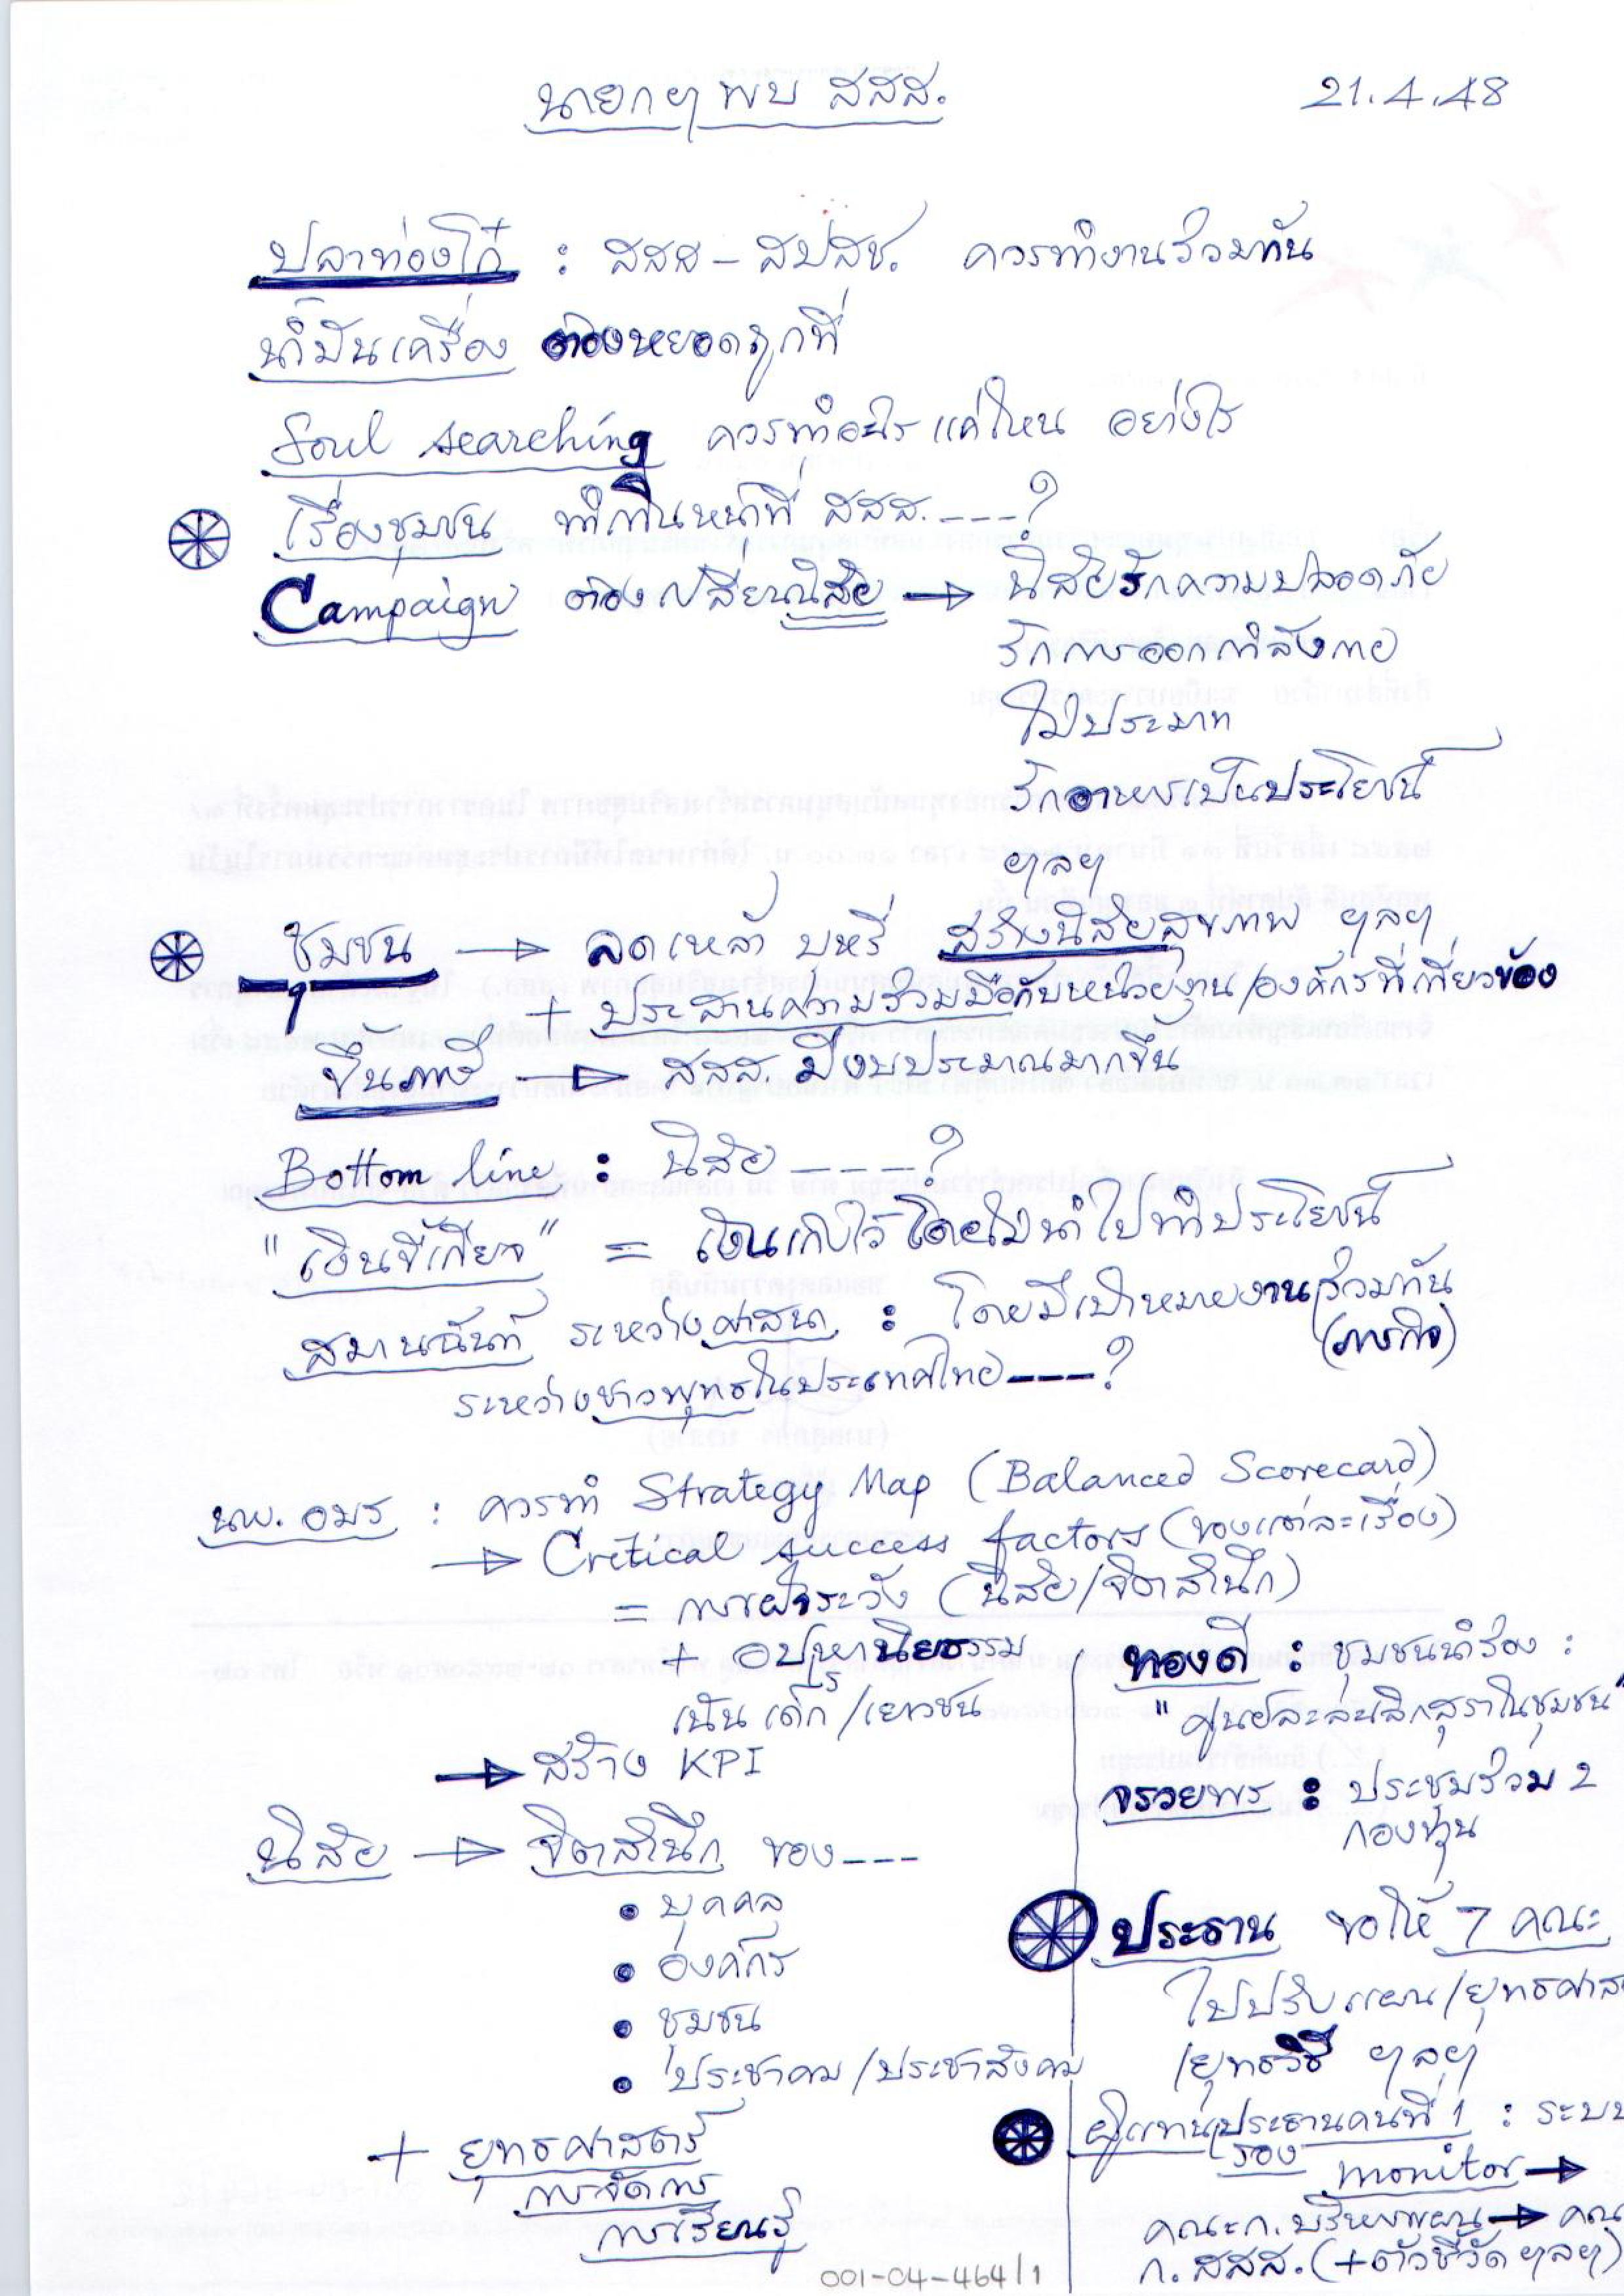 นายกฯ พบ สสส. 21.4.48
ปลาท่องโก๋ : สสส - สปสช. ควรทำงานร่วมกัน
น้ำมันเครื่อง ต้องหยอดถูกที่
Soul searching ควรทำอะไร แค่ไหน อย่างไร
เรื่องชุมชน ทำเกินหน้าที่ สสส. ---?
Campaign ต้องเปลี่ยนนิสัย → นิสัยรักความปลอดภัย
รักการออกกำลังกาย
ไม่ประมาท
รักอาหารเป็นประโยชน์
ฯลฯ
ชุมชน → ลดเหล้า บุหรี่ สร้างนิสัยสุขภาพ ฯลฯ
+ ประสานความร่วมมือกับหน่วยงาน/องค์กรที่เกี่ยวข้อง
ขึ้นภาษี → สสส. มีงบประมาณมากขึ้น
Bottom line : นิสัย ---?
"เงินขี้เกียจ" = เงินเก็บไว้โดยไม่นำไปทำประโยชน์
สมานฉันท์ ระหว่างศาสนา : โดยมีเป้าหมายงานร่วมกัน
(ภารกิจ)
ระหว่างชาวพุทธในประเทศไทย ---?
นพ. อมร : ควรทำ Strategy Map (Balanced Scorecard)
→ Cretical success factors (ของแต่ละเรื่อง)
= การเฝ้าระวัง (นิสัย/จิตสำนึก)
+ อปริหานิยธรรม
เน้น เด็ก/เยาวชน
→ สร้าง KPI
นิสัย → จิตสำนึก ของ ---
• บุคคล
• องค์กร
• ชุมชน
• ประชาคม/ประชาสังคม
+ ยุทธศาสตร์
การจัดการ
การเรียนรู้
ทองดี : ชุมชนนำร่อง :
"ศูนย์ละลดเลิกสุราในชุมชน"
จรวยพร : ประชุมร่วม 2
กองทุน
ประธาน ขอให้ 7 คณะ
ไปปรับแผน/ยุทธศาส
/ยุทธวิธี ฯลฯ
ผู้แทนประธานคนที่ 1 : ระบบ
รอง
monitor →
คณะก.บริหารแผน → คณ
ก. สสส. (+ตัวชี้วัด ฯลฯ)
001-04-464/1